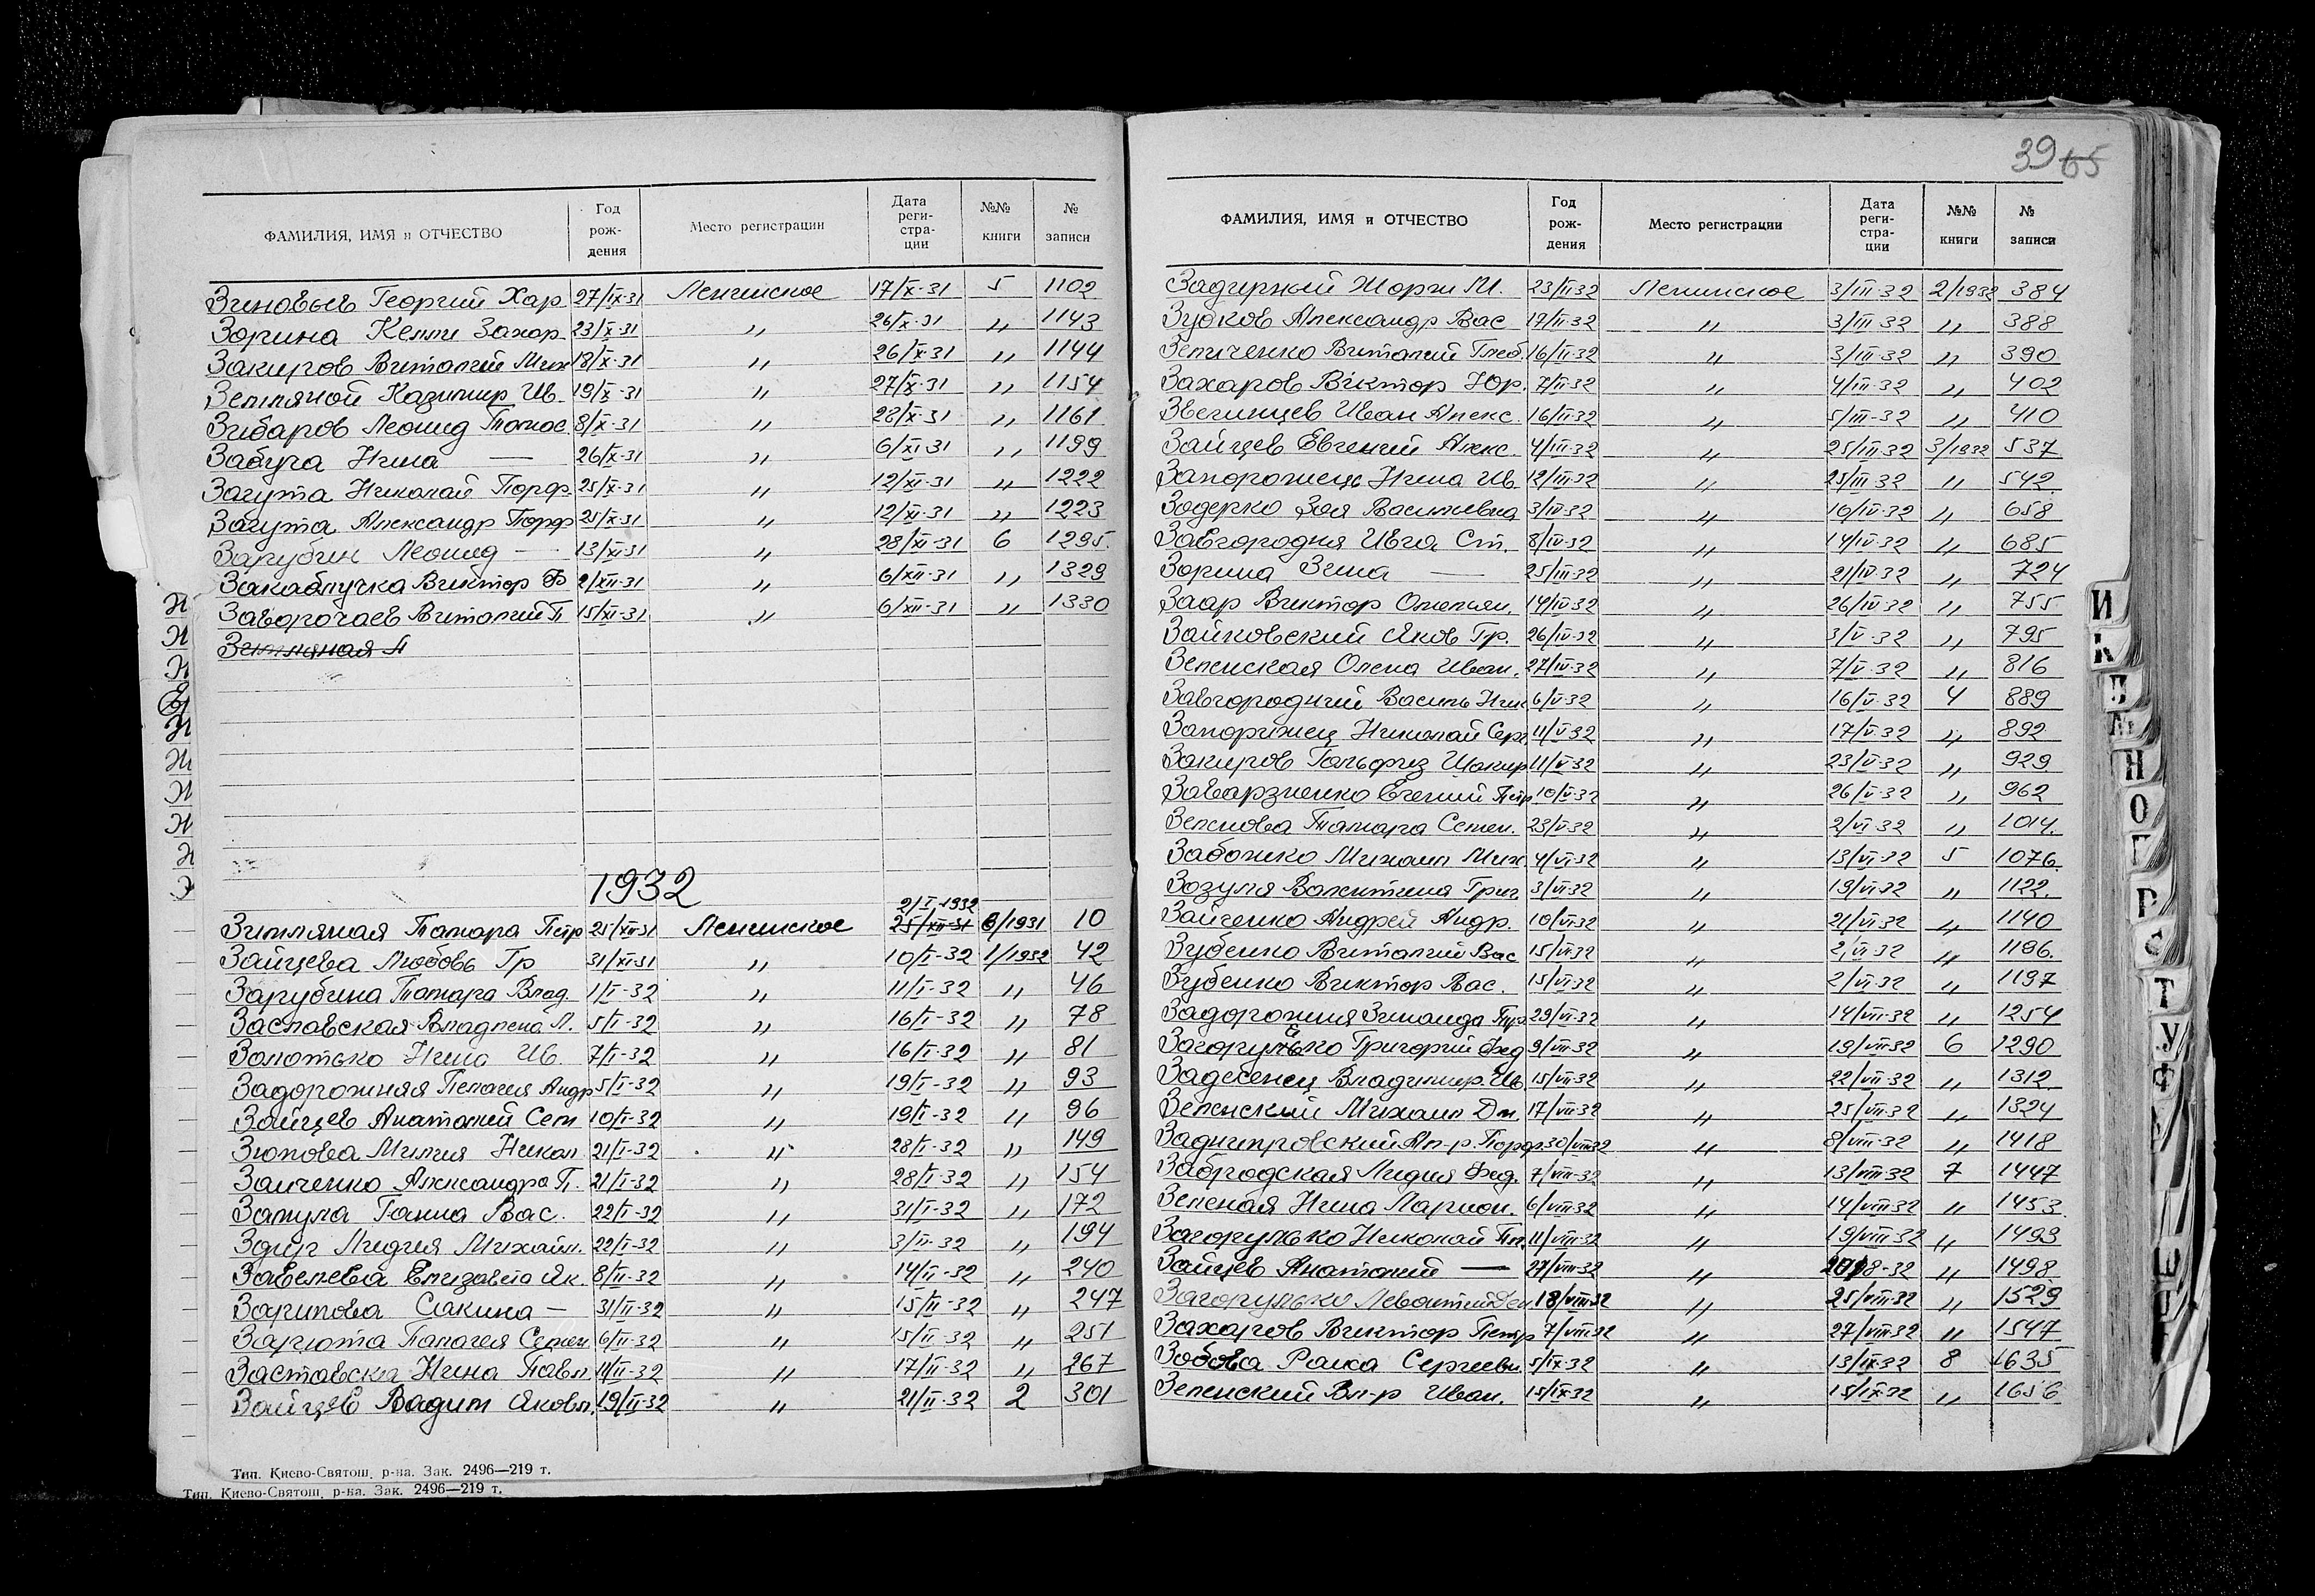 ФАМИЛИЯ, ИМЯ и ОТЧЕСТВО Год рождения Место регистрации Дата регистрации №№ книги № записи
Зиновьев Георгий Хар 27/IX-31 Ленинское 17/X-31 5 1102
Зорина Нелли Захар 23/X-31 " 26/X-31 " 1143
Закиров Виталий Мих 18/X-31 " 26/X-31 " 1144
Земляной Казимир Ив. 19/X-31 " 27/X-31 " 1154
Зибаров Леонид 8/X-31 " 28/X-31 " 1161
Забуга Нина — 26/X-31 " 6/XI-31 " 1199
Загута Николай Порф. 25/X-31 " 12/XI-31 " 1222
Загута Александр Порф 25/X-31 " 12/XI-31 " 1223
Зарубин Леонид — 13/XI-31 " 28/XI-31 6 1295
Закаблучка Виктор Ф 2/XII-31 " 6/XII-31 " 1329
Заворотаев Виталий П 15/XI-31 " 6/XII-31 " 1330
Земляная
1932
2/I-1932
Земляная Тамара Петр 25/XII-31 Ленинское 25/XII-31 6/1931 10
Зайцева Любовь Гр 31/XI-31 " 10/I-32 1/1932 42
Зарубина Тамара Влад. 1/I-32 " 11/I-32 " 46
Заславская Владлена Л. 5/I-32 " 16/I-32 " 78
Золотько Нина Ив. 7/I-32 " 16/I-32 " 81
Задорожняя Пелагея Андр 5/I-32 " 19/I-32 " 93
Зайцев Анатолий Сем 10/I-32 " 19/I-32 " 96
Зюпова Лилия Никол 21/I-32 " 28/I-32 " 149
Заиченко Александра П. 21/I-32 " 28/I-32 " 154
Запула Ганна Вас. 22/I-32 " 31/I-32 " 172
Здир Лидия Михайл. 22/I-32 " 3/II-32 " 194
Завелева Елизавета Як. 8/II-32 " 14/II-32 " 240
Зарипова Сакина — 31/II-32 " 15/II-32 " 247
Зарюта Палагея Семен 6/II-32 " 15/II-32 " 251
Заставска Нина Павл. 11/II-32 " 17/II-32 " 267
Зайцев Вадим Яковл. 19/II-32 " 21/II-32 2 301
Тип. Киево-Святош. р-на. Зак. 2496—219 т.
Тип. Киево-Святош. р-на. Зак. 2496—219 т.
39 65
ФАМИЛИЯ, ИМЯ и ОТЧЕСТВО Год рождения Место регистрации Дата регистрации №№ книги № записи
Задирный Жорж М. 23/II-32 Ленинское 3/III-32 2/1932 384
Зубков Александр Вас 17/II-32 " 3/III-32 " 388
Зеличенко Виталий Глеб. 16/II-32 " 3/III-32 " 390
Захаров Виктор Юр. 7/II-32 " 4/III-32 " 402
Звегинцев Иван Алекс. 16/II-32 " 5/III-32 " 410
Зайцев Евгений Алекс. 4/III-32 " 25/III-32 3/1932 537
Запорожець Нина Ив. 12/III-32 " 25/III-32 " 542
Задерко Зоя Васильевна 3/IV-32 " 10/IV-32 " 658
Завгородня Ивга Ст. 8/IV-32 " 14/IV-32 " 685
Зорина Зина — 25/III-32 " 21/IV-32 " 724
Заар Виктор Омельян. 14/IV-32 " 26/IV-32 " 755
Зайковский Яков Гр. 26/IV-32 " 3/V-32 " 795
Зеленская Олена Иван. 27/IV-32 " 7/V-32 " 816
Завгородний Василь Ник 6/V-32 " 16/V-32 4 889
Запорижец Николай Серг 11/V-32 " 17/V-32 " 892
Закиров Гальфиз Шакир 11/V-32 " 23/V-32 " 929
Заварзненко Евгений Петр 10/V-32 " 26/V-32 " 962
Зеленова Тамара Семен. 23/V-32 " 2/VI-32 " 1014
Заболжко Михаил Мих 4/VI-32 " 13/VI-32 5 1076
Зозуля Валентина Григ. 3/VI-32 " 19/VI-32 " 1122
Зайченко Андрей Андр. 10/VI-32 " 21/VI-32 " 1140
Зубенко Виталий Вас 15/VI-32 " 2/VI-32 " 1196
Зубенко Виктор Вас. 15/VI-32 " 2/VI-32 " 1197
Задорожня Зинаида 29/VI-32 " 14/VII-32 " 1254
Загорулько Григорий Фед 9/VII-32 " 19/VII-32 6 1290
Задесенец Владимир. Ив 15/VII-32 " 22/VII-32 " 1312
Зеленский Михаил Дм. 17/VII-32 " 25/VII-32 " 1324
Заднипровский Ал-р. Порф. 30/VIII-32 " 8/VIII-32 " 1418
Забродская Лидия Фед. 7/VIII-32 " 13/VIII-32 7 1447
Зеленая Нина Ларион. 6/VIII-32 " 14/VIII-32 " 1453
Загорулько Николай 11/VIII-32 " 19/VIII-32 " 1493
Зайцев Анатолий — 27/VIII-32 " 20/8-32 " 1498
Загорулько 18/VIII-32 " 25/VIII-32 " 1529
Захаров Виктор Петр 7/VIII-32 " 27/VIII-32 " 1547
Зобова Раиса Сергеевн 5/IX-32 " 13/IX-32 8 1635
Зеленский Вл-р Иван. 15/IX-32 " 15/IX-32 " 1656
И
К
Н
О
Р
С
Т
У
Ф
Ш